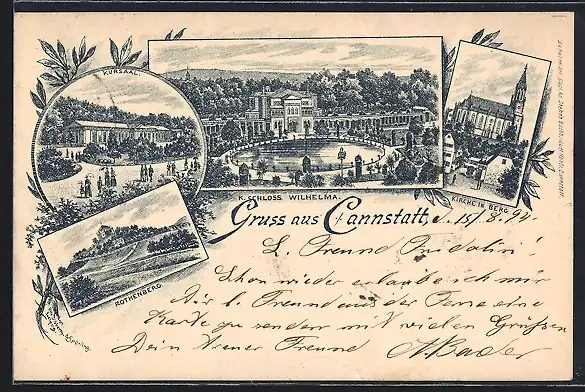 KURSAAL.
K. SCHLOSS WILHELMA.
KIRCHE IN BERG.
ROTHENBERG.
Gruss aus Cannstatt, d. 15/8. 94.
L. Freund Fridolin!
Schon wieder erlaube ich mir
Dir l. Freund aus der Ferne eine
Karte zu senden mit vielen Grüßen
Dein treuer Freund A. Bader